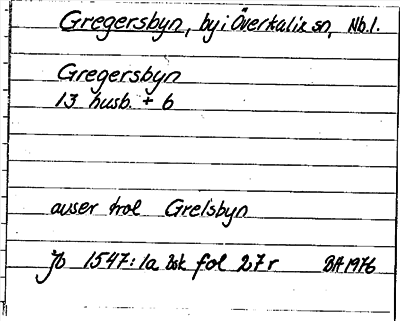 Gregersbyn, by i Överkalix sn, Nb.l.
Gregersbyn
13 husb. + 6
avser trol Grelsbyn
Jb 1547:1a bsk fol 27r BA 1976